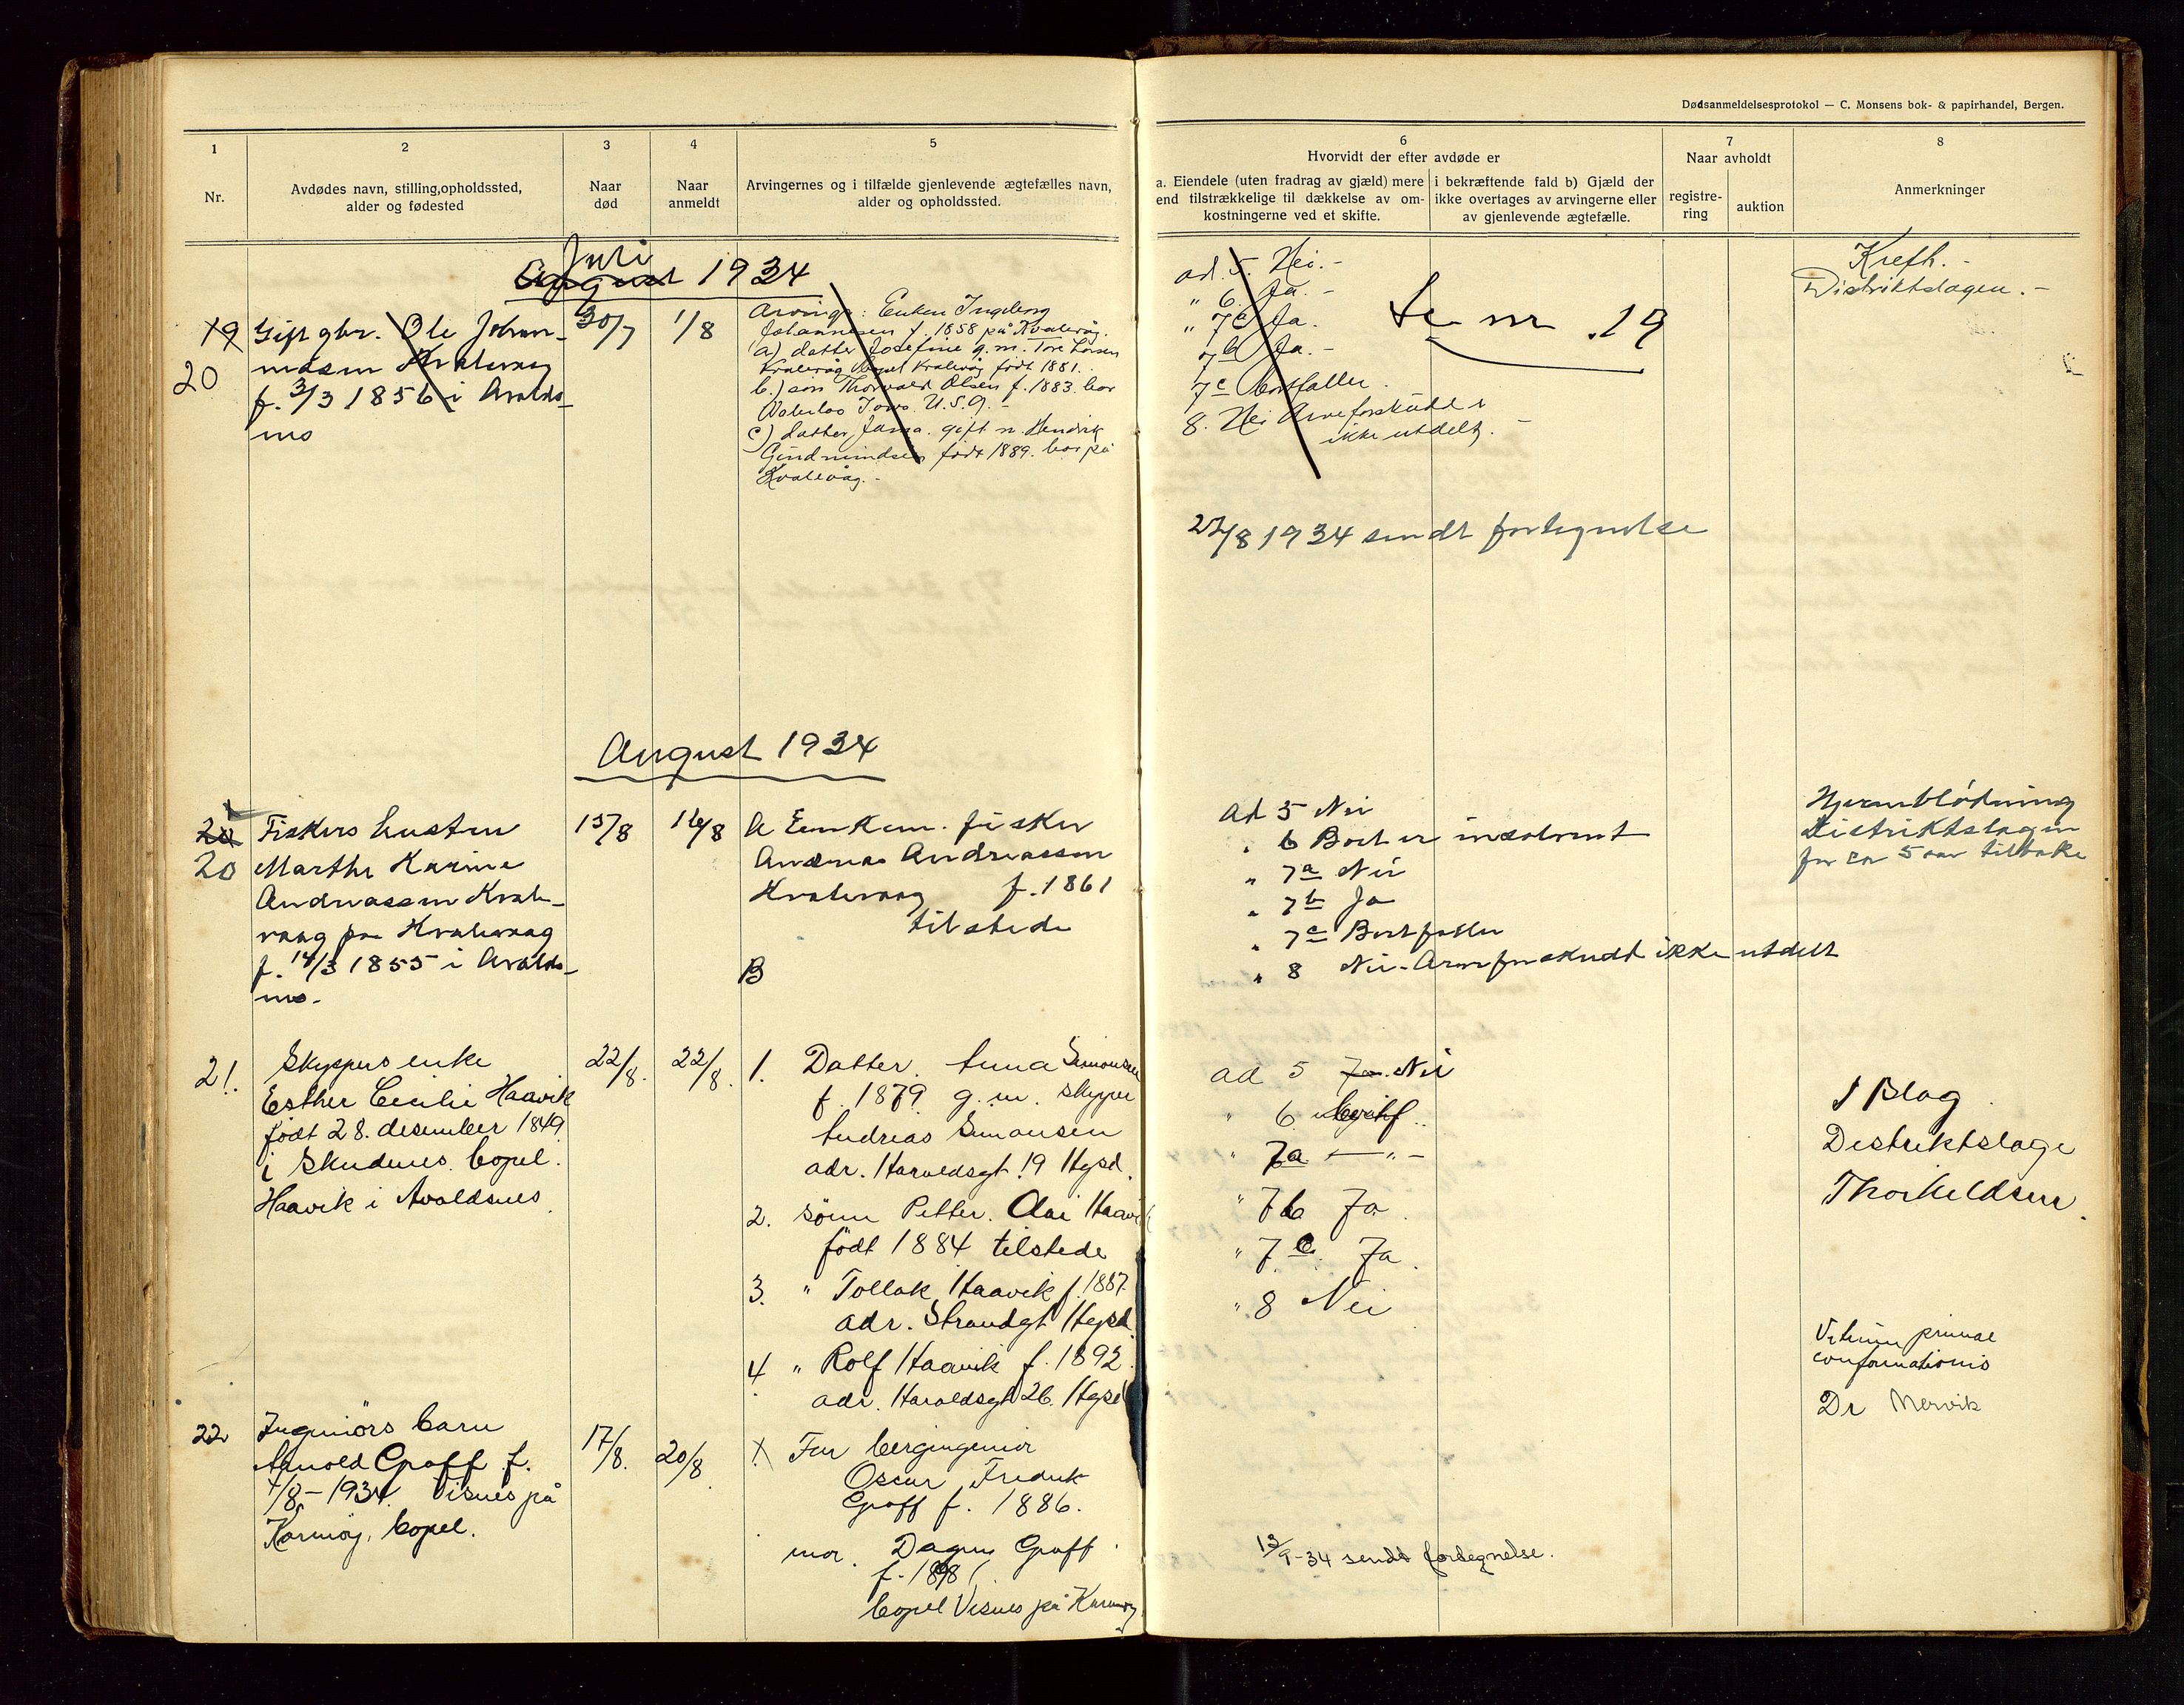 Dødsanmeldelsesprotokol — C. Monsens bok- & papirhandel, Bergen.
1
2
3
4
5
6
7
8
Nr.
Avdødes navn, stilling,opholdssted,
alder og fødested
Naar
død
Naar
anmeldt
Arvingernes og i tilfælde gjenlevende ægtefælles navn,
alder og opholdssted.
Hvorvidt der efter avdøde er
a. Eiendele (uten fradrag av gjæld) mere
end tilstrækkelige til dækkelse av om-
kostningerne ved et skifte.
i bekræftende fald b) Gjæld der
ikke overtages av arvingerne eller
av gjenlevende ægtefælle.
Naar avholdt
registre-
ring
auktion
Anmerkninger
Juli
August 1934
19
20
Gift gbr. Ole Johan-
nesen Kvalevaag
f. 3/3 1856 i Avalds-
nes
30/7
1/8
Arvinge: Enken Ingeborg
Johannesen f. 1858 på Kvalevåg.
a) datter Josefine g.m. Tore Larsen
Kvalevåg bopel Kvalevåg født 1881.
b) søn Thorvald Olsen f. 1883. bor
Waterloo Iowa. U.S.A. -
c) datter, Jama. gift m. Hendrik
Gundmundsen født 1889. bor på
Kvalevåg. -
ad. 5. Nei. -
" 6. Ja. -
" 7a Ja.
7b Ja. -
7c Bortfaller.
8. Nei Arveforskudd er
ikke utdelt. -
Se nr. 19
Kreft. -
Distriktslagen. -
27/8 1934 sendt fortegnelse
August 1934
20
20
Fiskers hustru
Marthe Karine
Andreassen Kvale-
vaag paa Kvalevaag
f. 14/3 1855 i Avalds-
nes.
15/8
16/8
A Enkem. fisker
Andreas Andreassen
Kvalevaag f. 1861
tilstede
B
ad 5 Nei
" 6 Boet er insolvent
" 7a Nei
" 7b Ja
" 7c Bortfaller
" 8 Nei. Arveforskudt ikke utdelt
Hjerneblödning
Distriktslagen
for ca 5 aar tilbake
21.
Skyppers enke
Esther Cecilie Haavik
født 28. desember 1849
i Skudenes. bopel.
Haavik i Avaldsnes.
22/8.
22/8.
1. Datter. Anna Simonsen
f. 1879 g. m. skyper
Andreas Simonsen
adr. Haraldsgt. 19 Hgsd.
2. sønn Petter. Olai Haavik
født 1884 tilstede
3. " Tollak Haavik f. 1887.
adr. Strandgt Hgsd.
4. " Rolf Haavik f. 1892.
adr. Haraldsgt 26. Hgsd
ad 5 Ja. Nei
" 6
" 7a — " —
" 7b Ja.
" 7c. Ja.
" 8 Nei
Slag
Destriktslage
Thorkeldsen.
22
Ingeniörs barn
Arnold Graff f.
1/8 - 1934. Visnes på
Karmøy, bopel.
17/8.
20/8.
Far bergingeniør
Oscar Fredrik
Graff f. 1886.
mor. Dagny Graff
f. 1898
bopel Visnes på Karmøy
13/9-34 sendt fortegnelse.
Vitium primae
conformationis
Dr Mervik